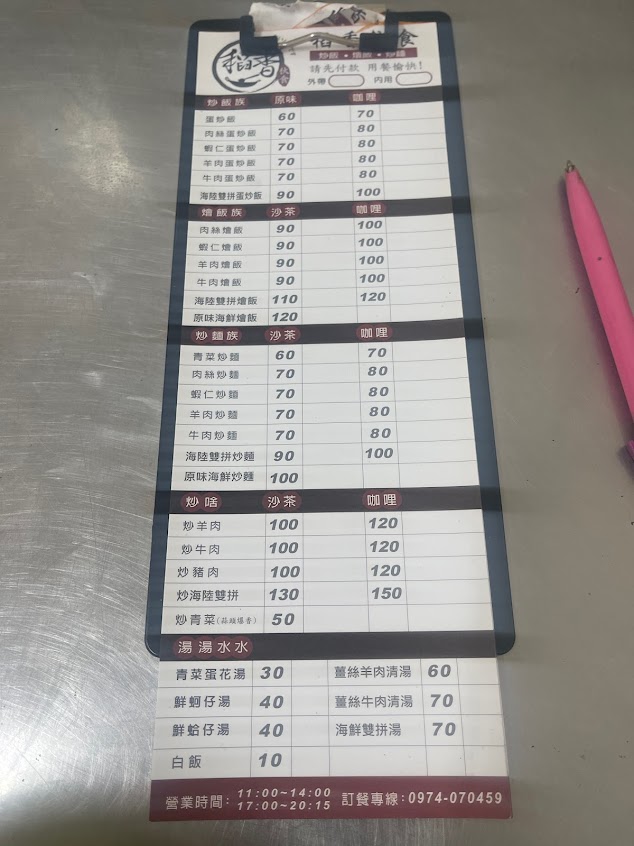 稻香 飲食
稻香飲食
炒飯•燴飯•炒麵
請先付款 用餐愉快!
外帶 內用
炒飯族 原味 咖哩
蛋炒飯 60 70
肉絲蛋炒飯 70 80
蝦仁蛋炒飯 70 80
羊肉蛋炒飯 70 80
牛肉蛋炒飯 70 80
海陸雙拼蛋炒飯 90 100
燴飯族 沙茶 咖哩
肉絲燴飯 90 100
蝦仁燴飯 90 100
羊肉燴飯 90 100
牛肉燴飯 90 100
海陸雙拼燴飯 110 120
原味海鮮燴飯 120
炒麵族 沙茶 咖哩
青菜炒麵 60 70
肉絲炒麵 70 80
蝦仁炒麵 70 80
羊肉炒麵 70 80
牛肉炒麵 70 80
海陸雙拼炒麵 90 100
原味海鮮炒麵 100
炒啥 沙茶 咖哩
炒羊肉 100 120
炒牛肉 100 120
炒豬肉 100 120
炒海陸雙拼 130 150
炒青菜(蒜頭爆香) 50
湯湯水水
青菜蛋花湯 30 薑絲羊肉清湯 60
鮮蚵仔湯 40 薑絲牛肉清湯 70
鮮蛤仔湯 40 海鮮雙拼湯 70
白飯 10
營業時間: 11:00~14:00 17:00~20:15 訂餐專線:0974-070459